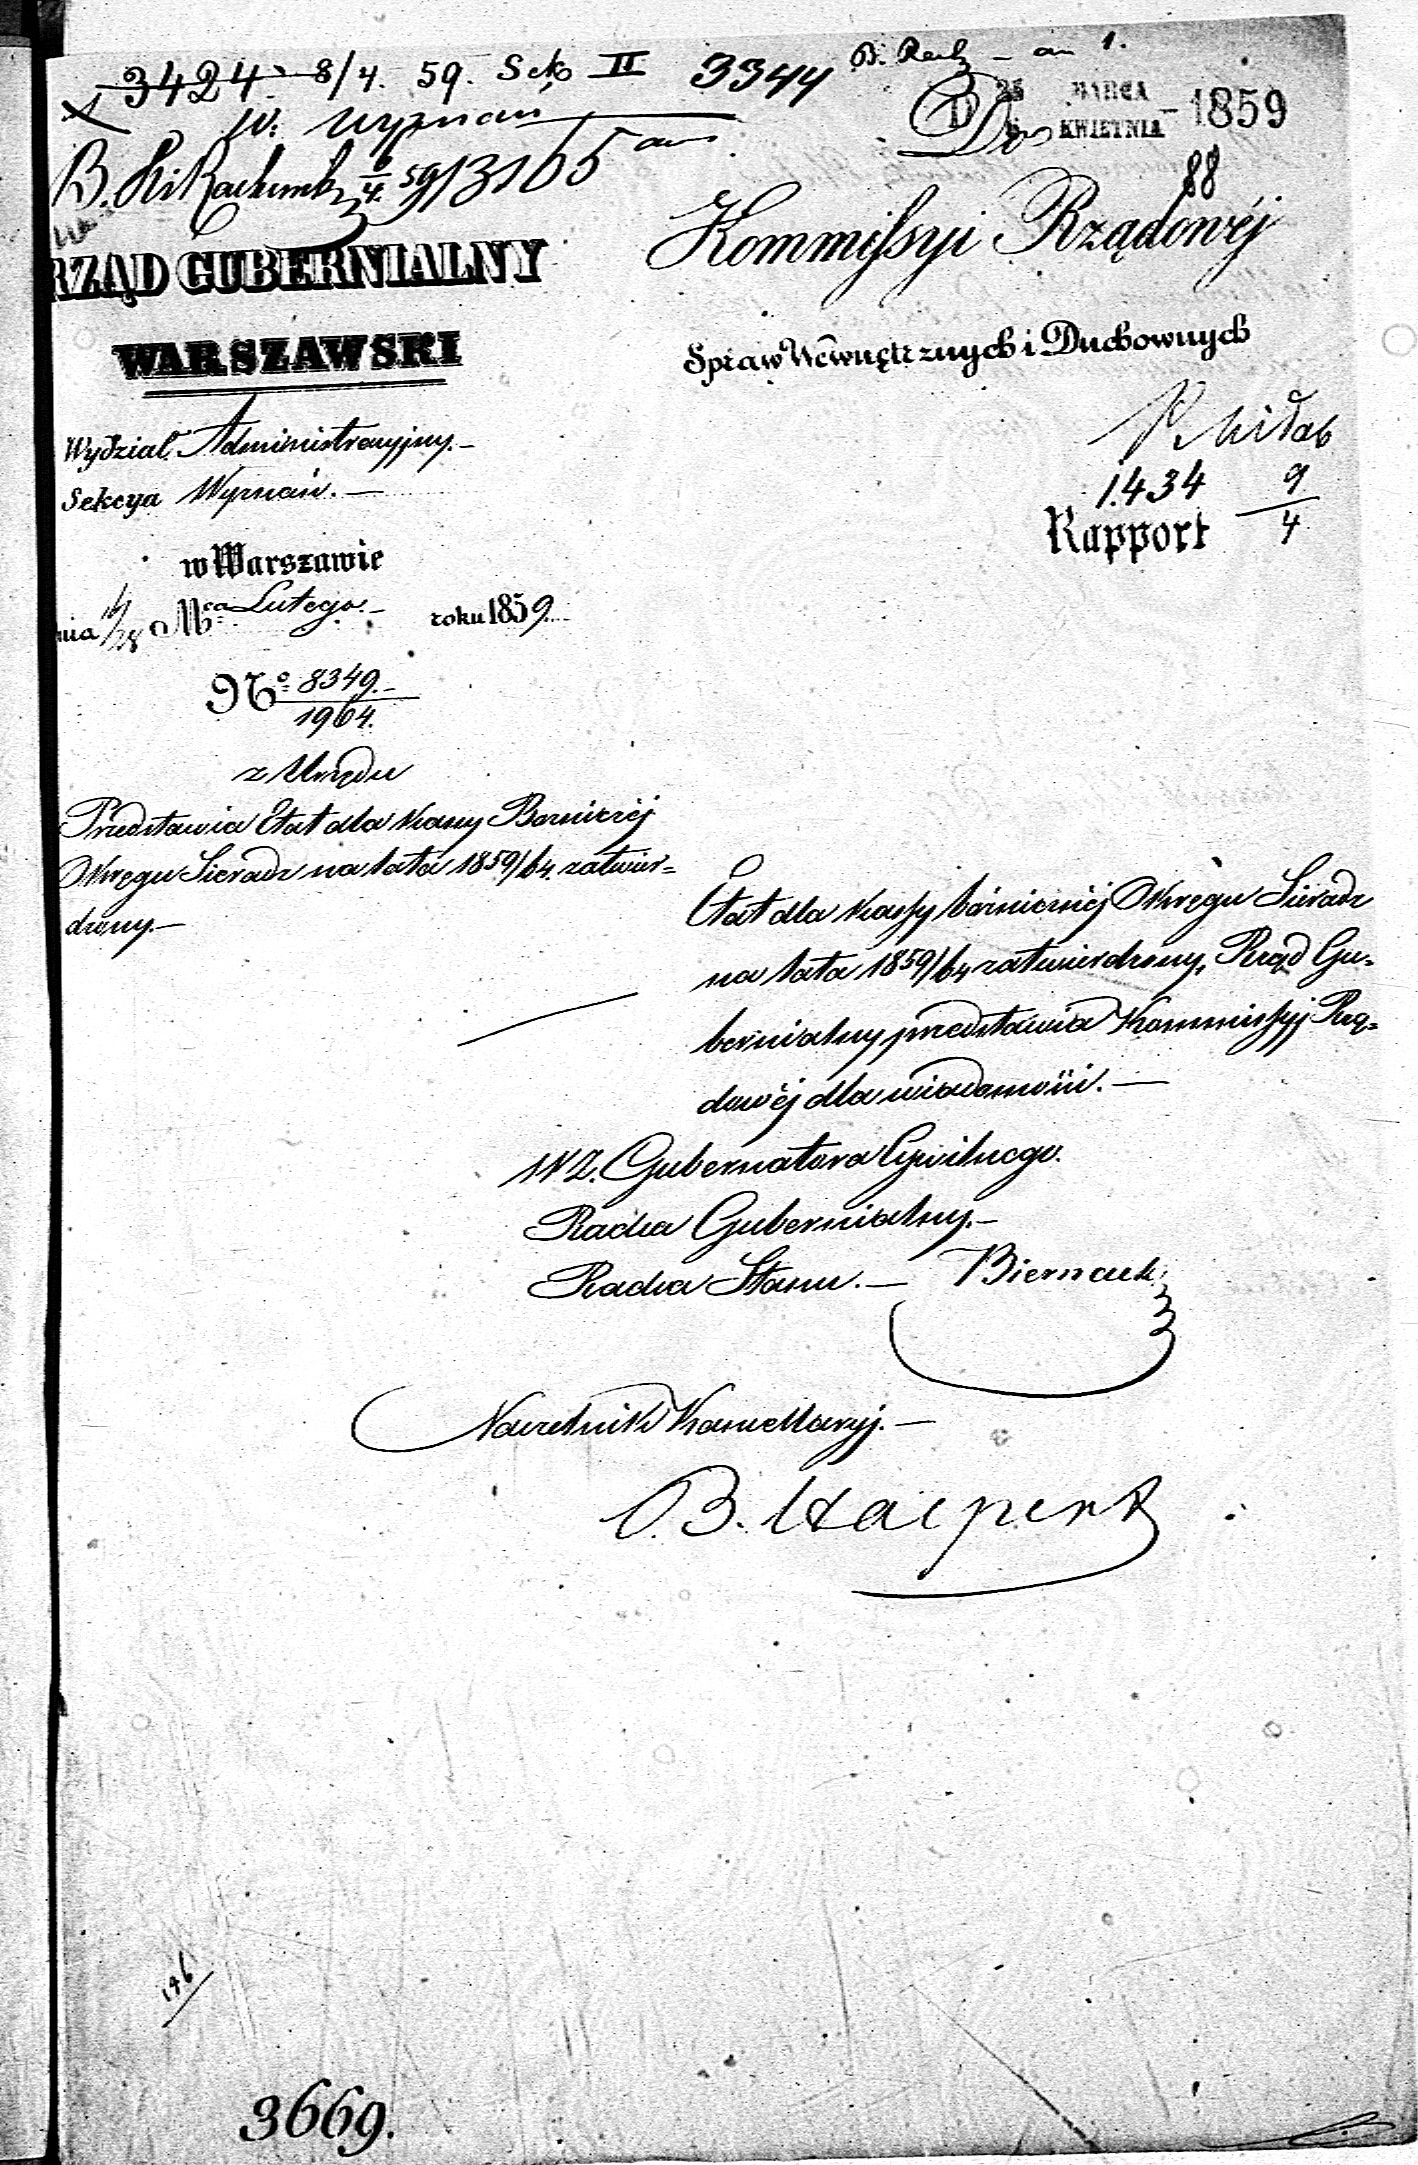 3424. 8/4. 59. Sek II 3344
W. Wyznań
B. Ki Rachunk 6/4 59/3165
D 25 MARCA 1859
6 KWIETNIA
Do
88
RZĄD GUBERNIALNY
WARSZAWSKI
Wydział Administracyjny.—
Sekcya Wyznań.—
w Warszawie
nia 16/28 Mca Lutego.— roku 1859.
No 8349.—
1964.
z Urzędu
Przedstawia Etat dla Kassy Bożniczéj
Okręgu Sieradz na lata 1859/64. zatwier=
dzony.—
Kommissyi Rządowéj
Spraw Wewnętrznych i Duchownych
1434 9/4
Rapport
Etat dla Kassy bóżniczéj Okręgu Sieradz
na lata 1859/64 zatwierdzony, Rząd Gu=
bernialny przedstawia Kommissyj Rzą=
dowéj dla wiadomości.—
W Z. Gubernatora Cywilnego.
Radca Gubernialny.—
Radca Stanu.— Biernacki
Naczelnik Kancellaryj.—
B. Halpert
146
3669.